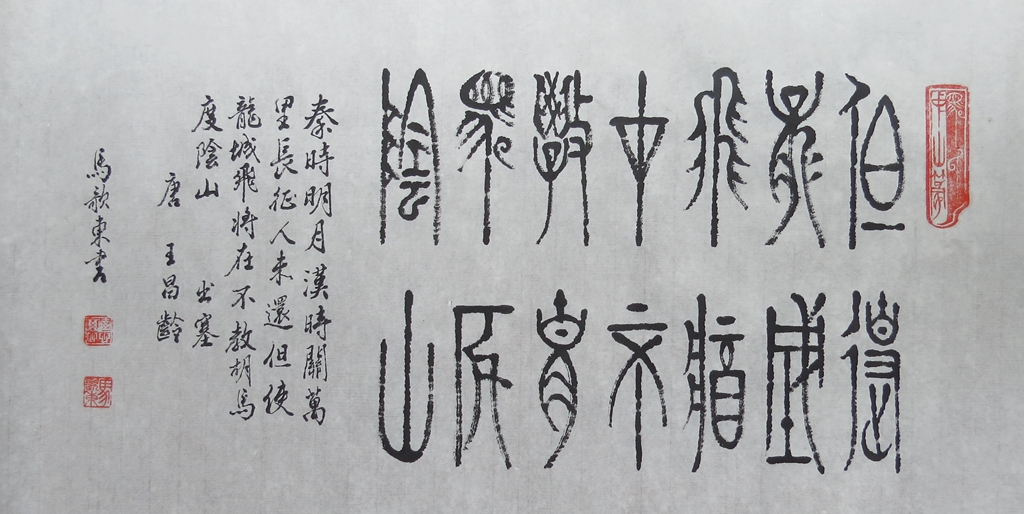 但使
龍城
飛將
在不
教胡
馬度
陰山
秦時明月漢時關萬
里長征人未還但使
龍城飛將在不教胡馬
度陰山 出塞
唐 王昌齡
馬歌東書